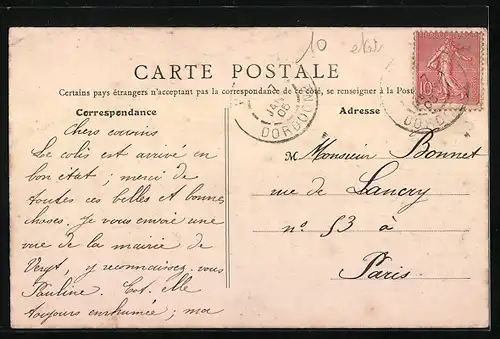 10
CARTE POSTALE
Certains pays étrangers n'acceptant pas la correspondance de ce côté, se renseigner à la Poste
Correspondance
Adresse
Chers cousins
Le colis est arrivé en
bon état; merci de
toutes ces belles et bonnes
choses. Je vous envoie une
vue de la mairie de
Vergt, y reconnaissez-vous
Pauline. Est-elle
toujours enrhumée; ma
M Monsieur Bonnet
rue de Lancry
n° 53 à
Paris
JANV
05
DORDOGNE
10